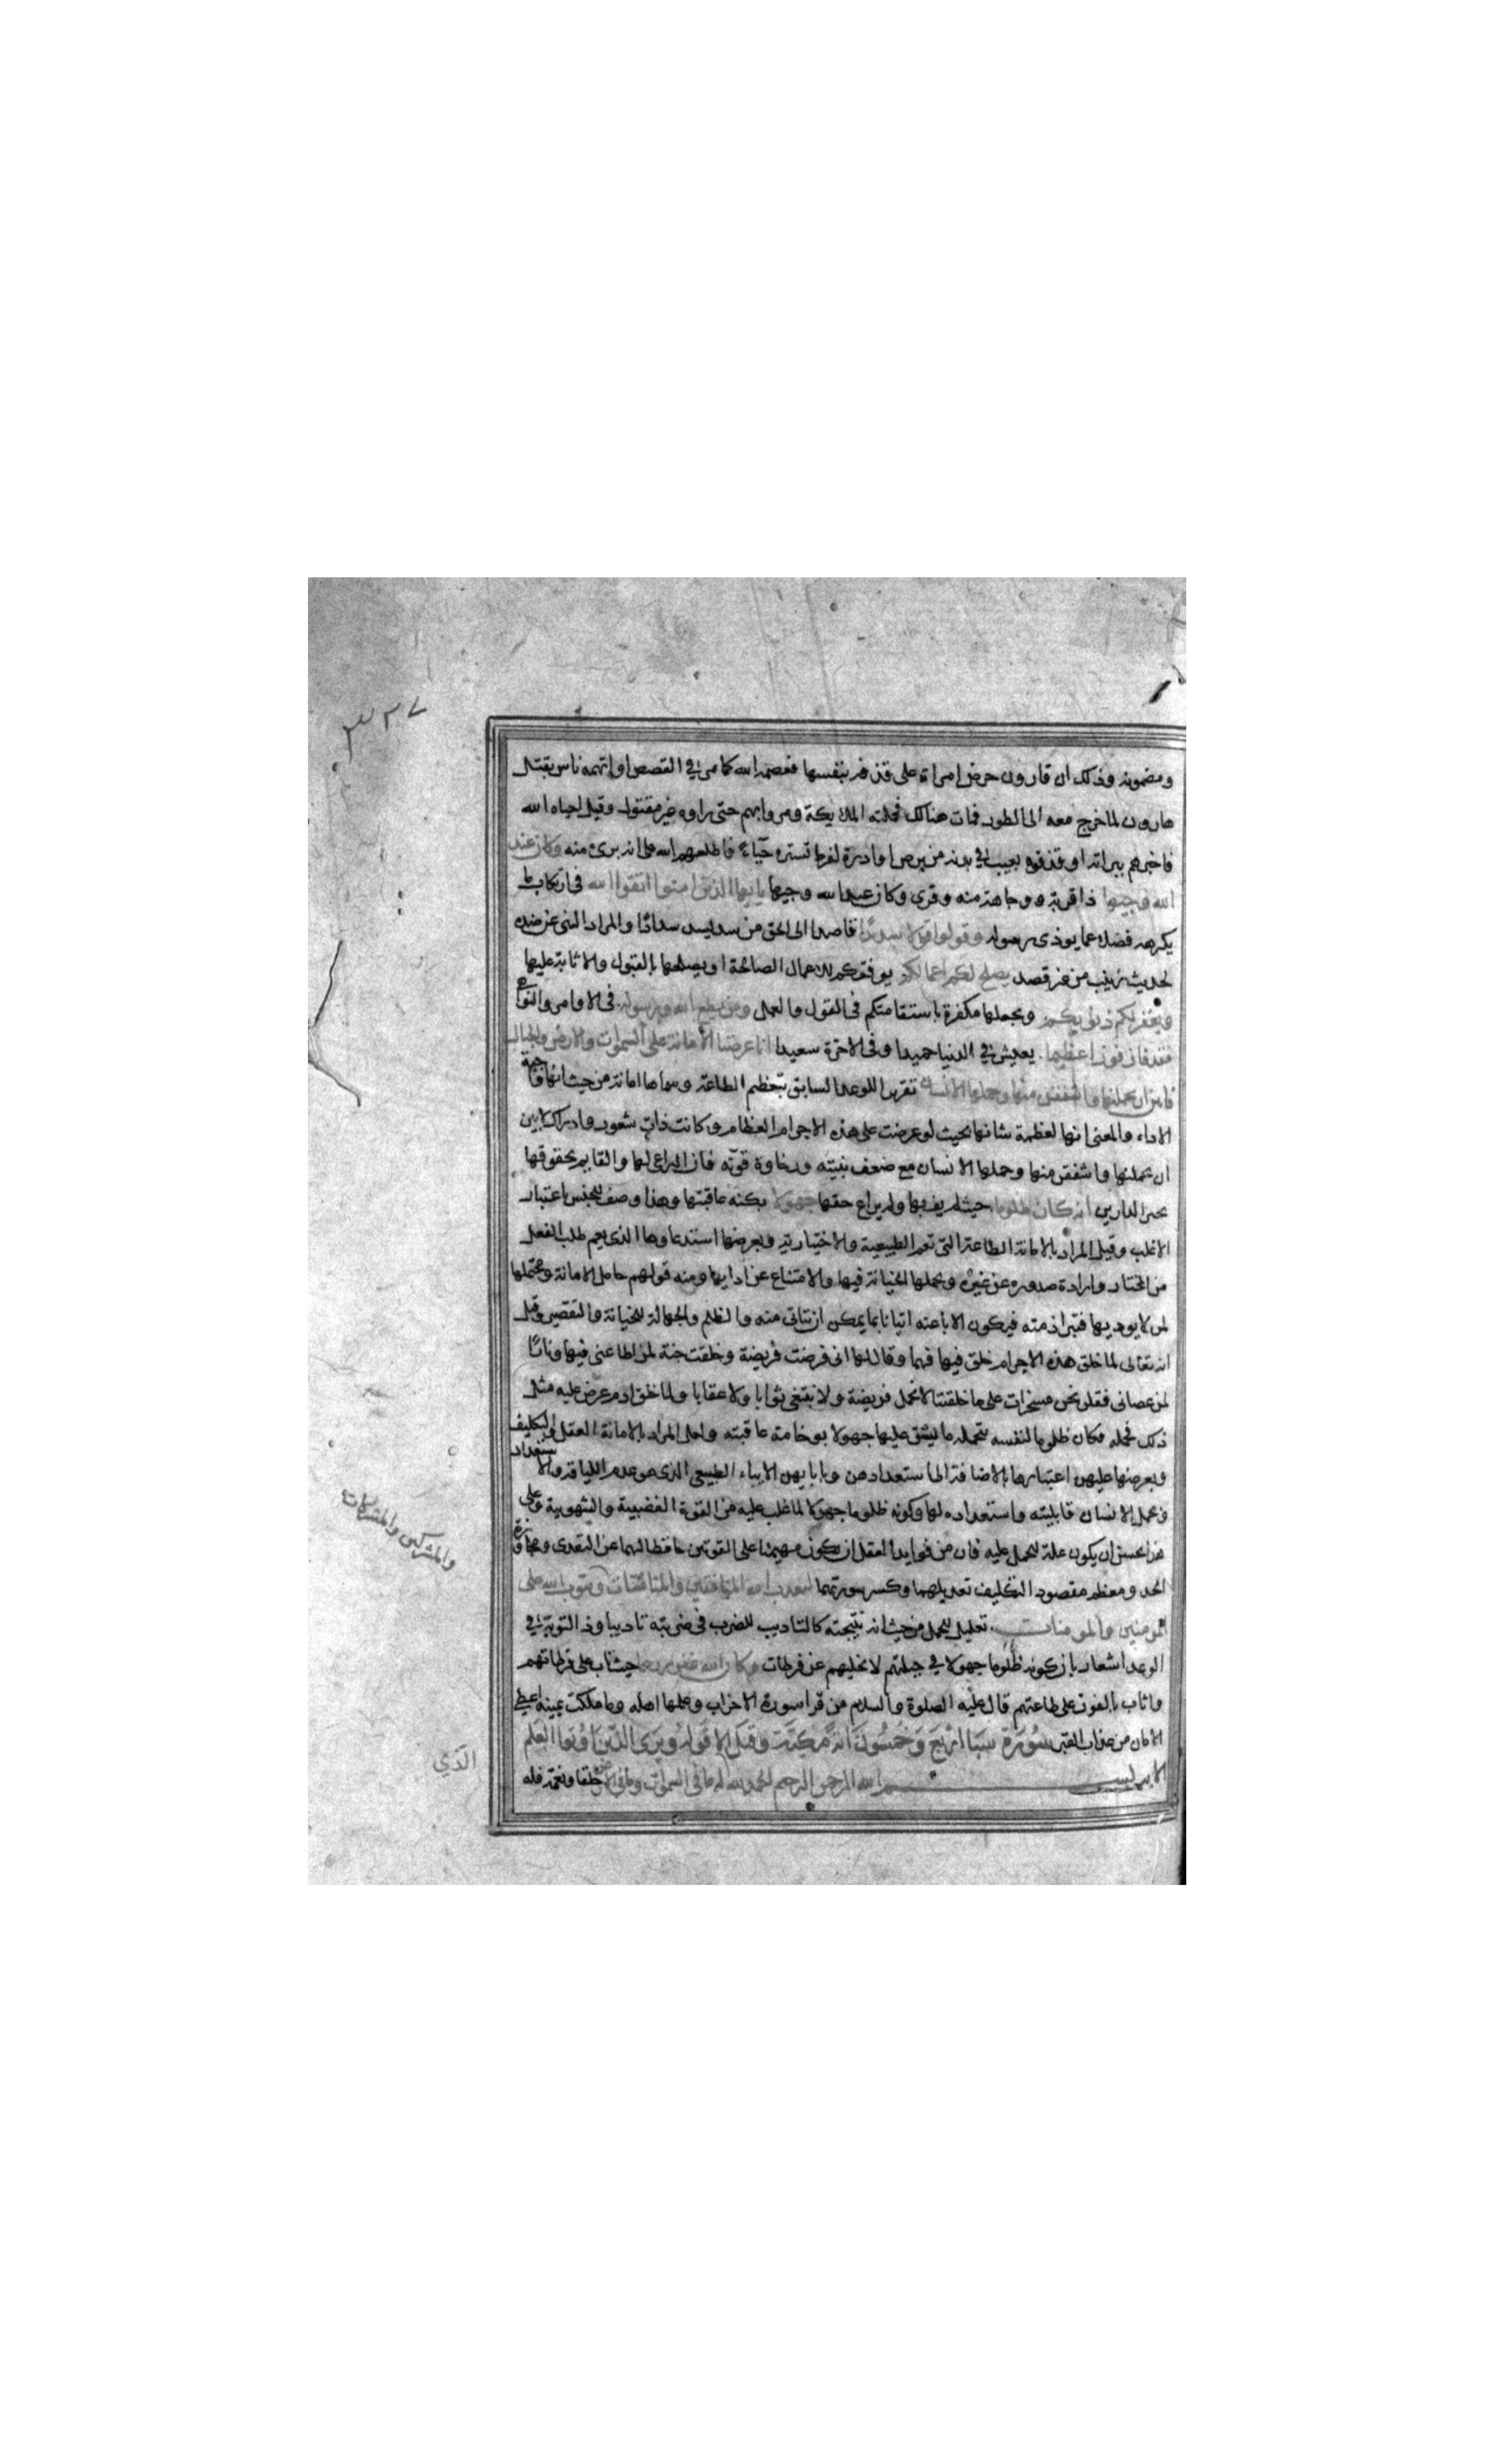 ٣٢٧
ومضمونه وذلك ان قارون حرض امراة على قذفه بنفسها فعصمه الله كما مر في القصص او اتهمه ناس بقتل
هارون لما خرج معه الى الطور فمات هنالك فحملته الملايكة ومروا بهم حتى راوه غير مقتول وقيل احياه الله
فاخبرهم ببراته او قذفوه بعيب في بدنه من برص او ادرة لفرط تستره حياء فاطلعهم الله على انه برئ منه وكان عند
الله وجيها ذا قربة ووجاهة منه وقرئ وكان عبد الله وجيها يا يها الذين امنوا اتقوا الله في ارتكاب ما
يكرهه فضلا عما يوذى رسوله وقولوا قولا سديدا قاصدا الى الحق من سد يسد سدادا والمراد النهى عن ضده
لحديث زينب من غير قصد يصلح لكم اعمالكم يوفقكم للاعمال الصالحة او يصلحها بالقبول والاثابة عليها
ويغفر لكم ذنوبكم ويجعلها مكفرة باستقامتكم فى القول والعمل ومن يطع الله ورسوله فى الاوامر والنواهي
فقد فاز فوزا عظيما يعيش في الدنيا حميدا وفى الاخرة سعيدا انا عرضنا الامانة على السموات والارض والجبال
فابين ان يحملنها واشفقن منها وحملها الانسان تقرير للوعد السابق بتعظيم الطاعة وسماها امانة من حيث انها واجبة
الاداء والمعنى انها لعظمة شانها بحيث لو عرضت على هذه الاجرام العظام وكانت ذات شعور وادراك لابين
ان يحملنها واشفقن منها وحملها الانسان مع ضعف بنيته ورخاوة قوته فاز الراعى لها والقايم بحقوقها
بخير الدارين انه كان ظلوما حيث لم يف بها ولم يراع حقها جهولا بكنه عاقبتها وهذا وصف للجنس باعتبار
الاغلب وقيل المراد بالامانة الطاعة التى تعم الطبيعية والاختيارية وبعرضها استدعاوها الذى يعم طلب الفعل
من المختار وارادة صدوره عن غيره وبحملها الخيانة فيها والامتناع عن ادايها ومنه قولهم حامل الامانة ومحتملها
لمن لا يوديها فتبرا ذمته فيكون الاباعنه اتيانا بما يمكن ان يتاتى منه والظلم والجهالة للخيانة والتقصير وقيل
انه تعالى لما خلق هذه الاجرام خلق فيها فهما وقال لها انى فرضت فريضة وخلقت جنة لمن اطاعنى فيها ونارا
لمن عصانى فقلن نحن مسخرات على ما خلقتنا لا نحمل فريضة ولا نبتغى ثوابا ولا عقابا ولما خلق ادم عرض عليه مثل
ذلك فحمله فكان ظلوما لنفسه بتحمله ما يشق عليها جهولا بوخامة عاقبته ولعل المراد بالامانة العقل والتكليف
وبعرضها عليهن اعتبارها بالاضافة الى استعدادهن وبابايهن الاباء الطبيعى الذى هو عدم اللياقة والاستعداد
وبحمل الانسان قابليته واستعداده لها وكونه ظلوما جهولا لما غلب عليه من القوة الغضبية والشهوية وعلى
هذا يحسن ان يكون علة للحمل عليه فان من فوايد العقل ان يكون مهيمنا على القوتين حافظا لهما عن التعدى ومجاوزة
الحد ومعظم مقصود التكليف تعديلهما وكسر سورتهما ليعذب الله المنافقين والمنافقات ويتوب الله على
والمشركين والمشركات
المومنين والمومنات تعليل للحمل من حيث انه نتيجته كالتاديب للضرب فى ضربته تاديبا وذكر التوبة في
الوعد اشعار بان كونه ظلوما جهولا في جبلتهم لا يخليهم عن فرطات وكان الله غفورا رحيما حيث تاب على فرطاتهم
واثاب بالفوز على طاعتهم قال عليه الصلوة والسلام من قرا سورة الاحزاب وعلمها اهله وما ملكت يمينه اعطى
الامان من عذاب القبر سورة سبا اربع وخمسون اية مكية وقيل الا قوله ويرى الذين اوتوا العلم
الاية بسم الله الرحمن الرحيم الحمد لله له ما فى السموات وما فى الارض خلقا ونعمة فله
الذي